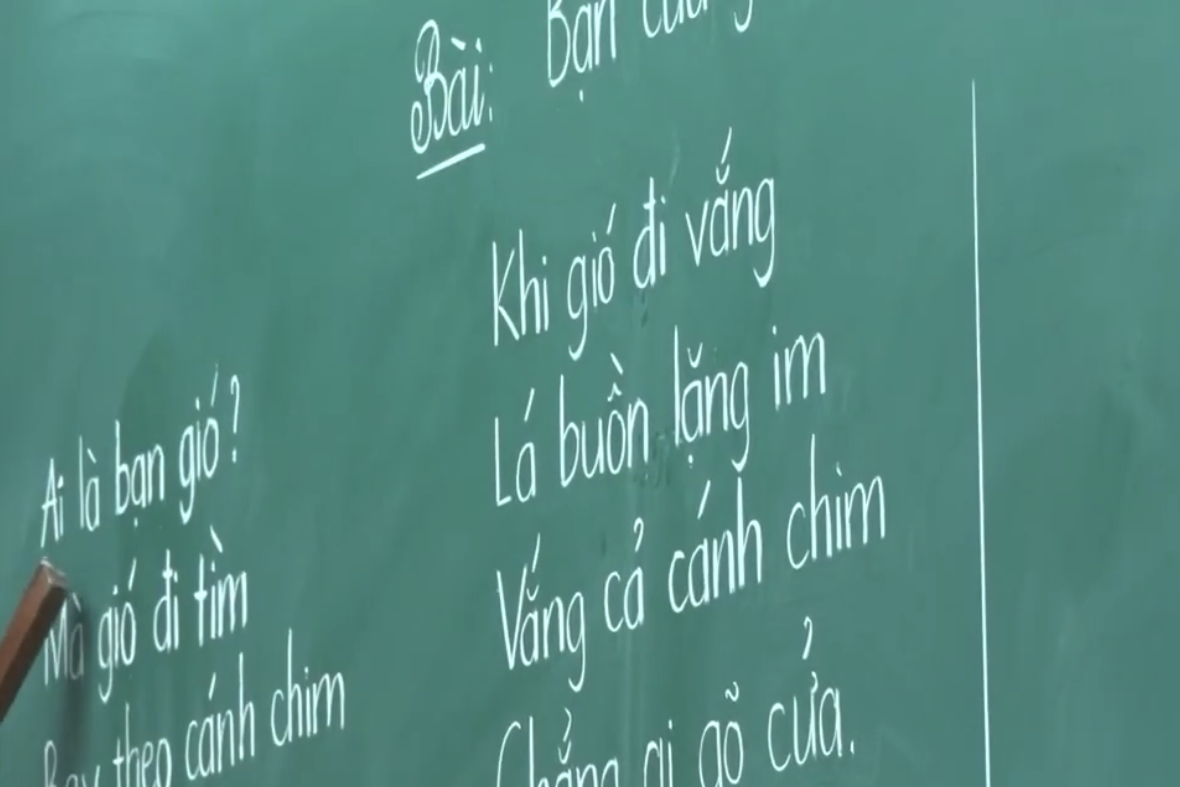 Bài: Bạn của
Ai là bạn gió?
Mà gió đi tìm
Bay theo cánh chim
Khi gió đi vắng
Lá buồn lặng im
Vắng cả cánh chim
Chẳng ai gõ cửa.